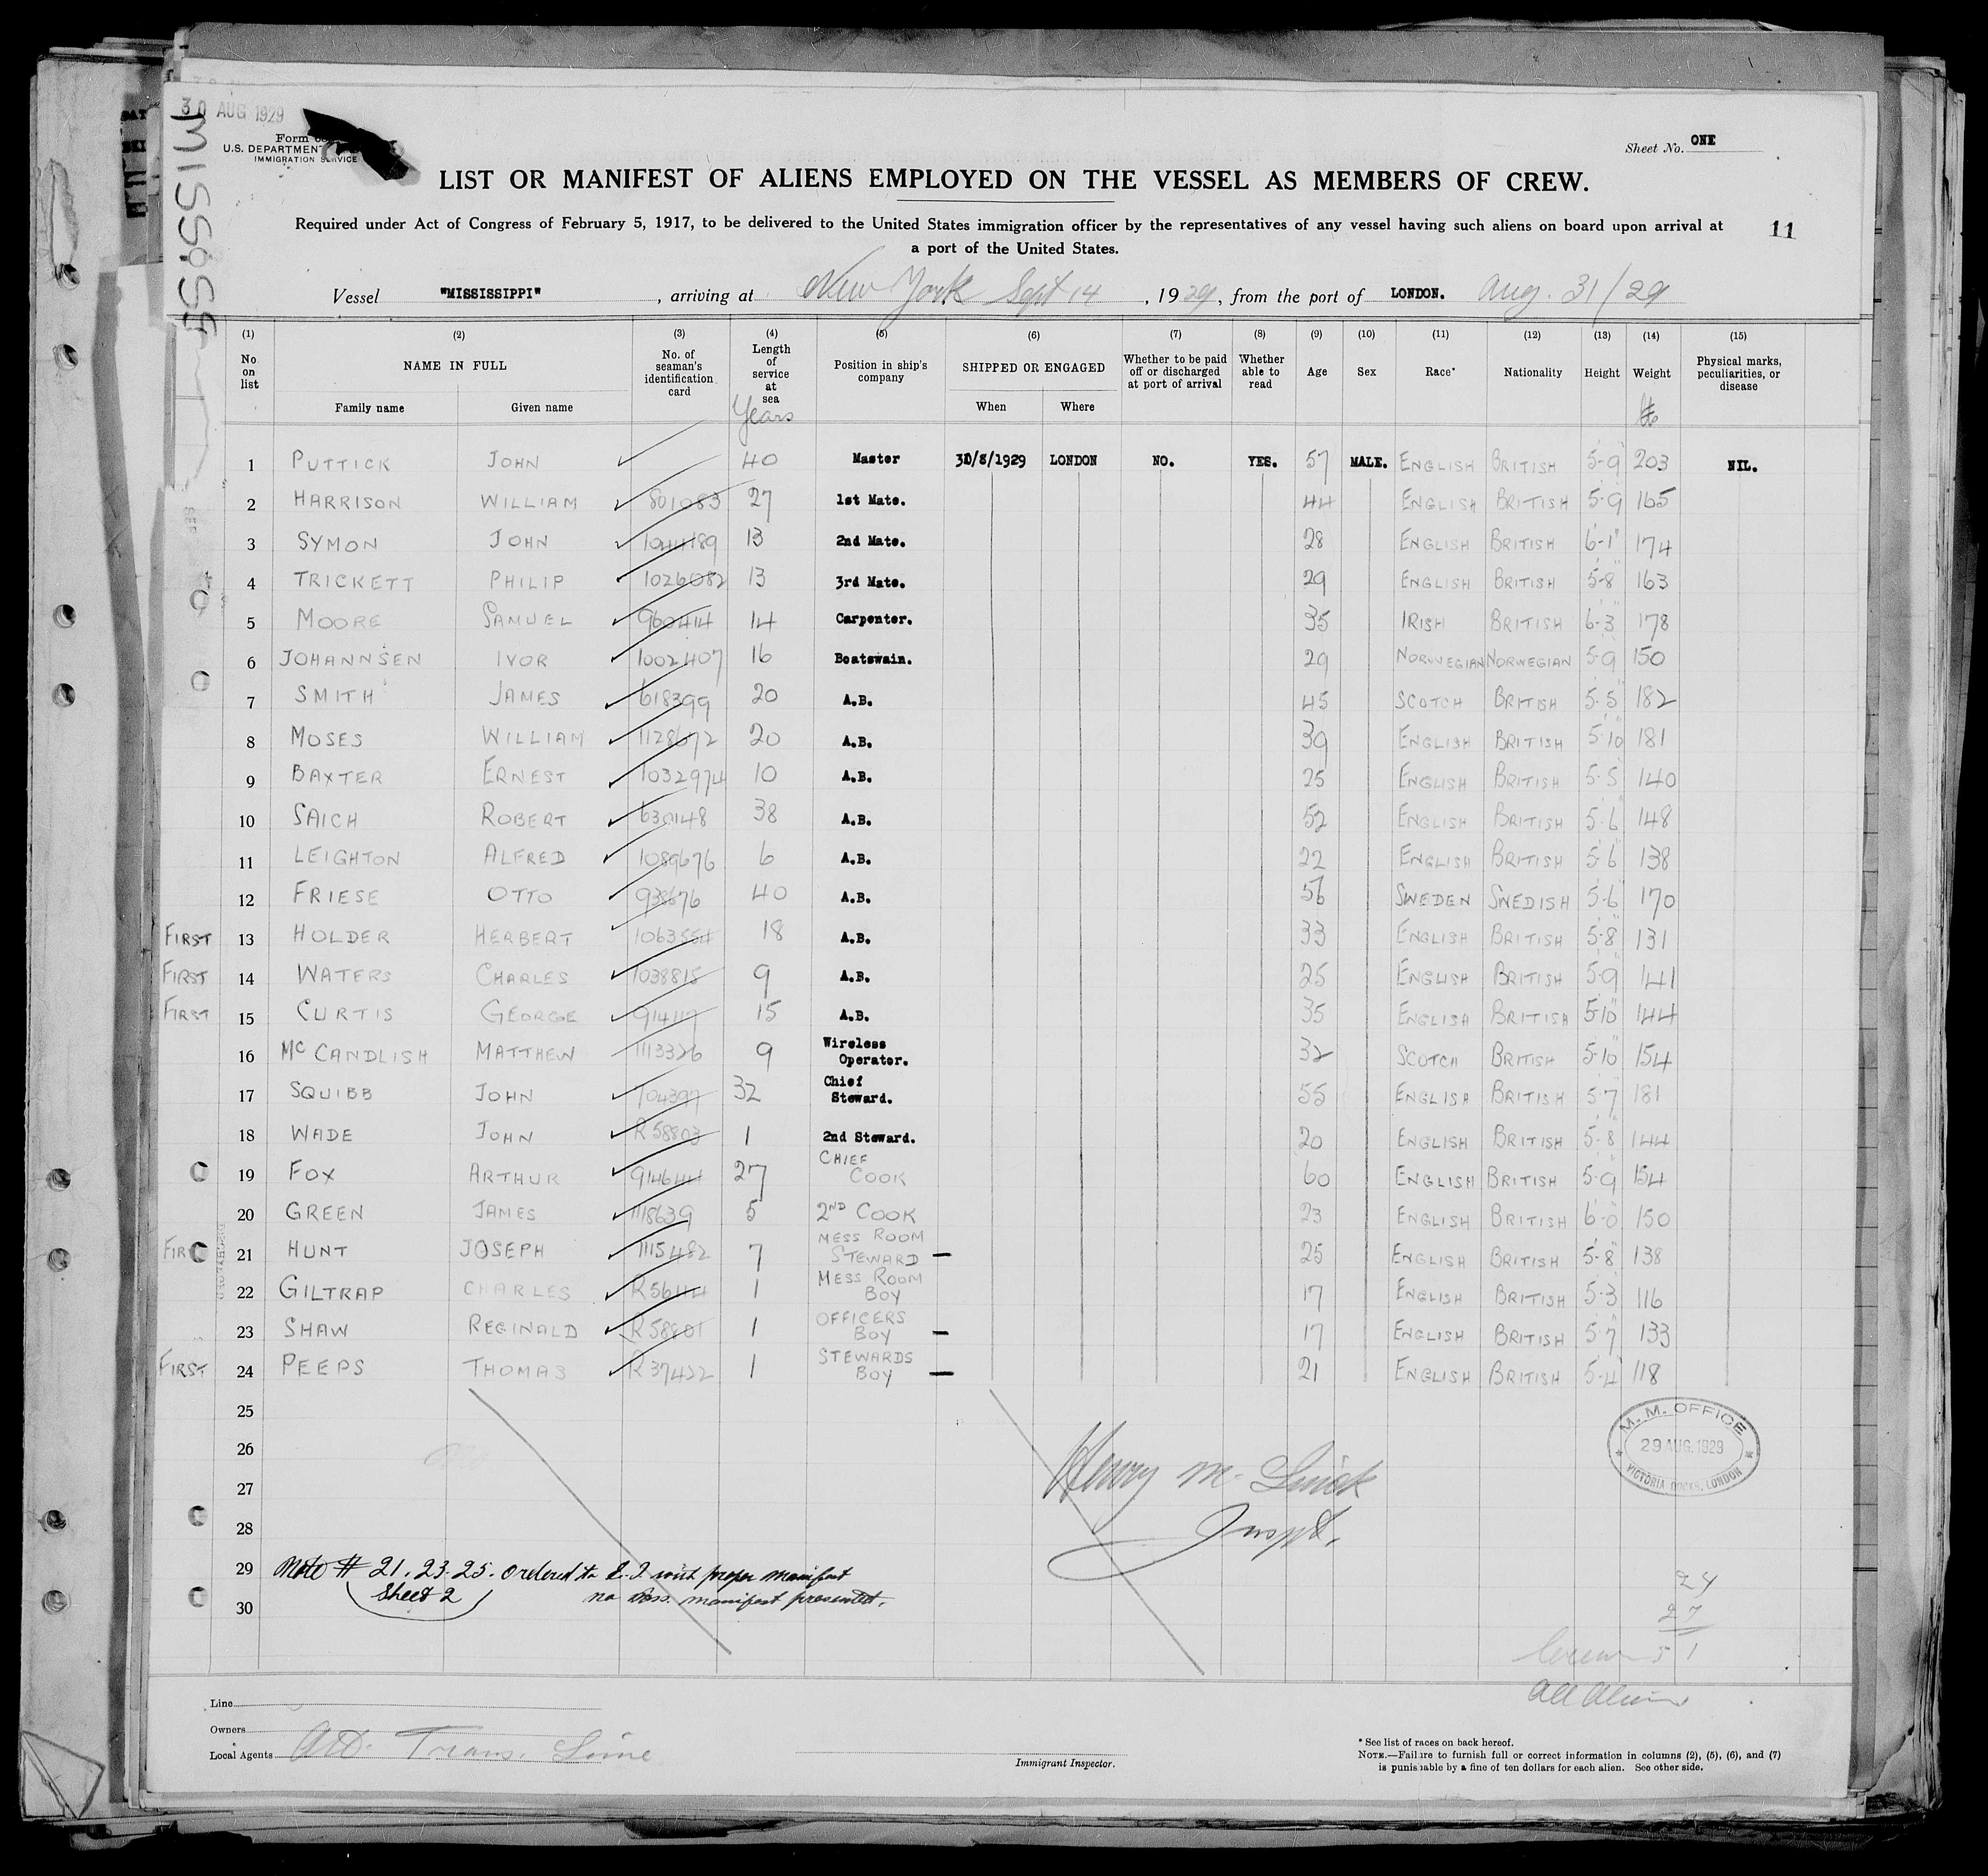 30 AUG 1929
MISSISSI
Form
U.S. DEPARTMENT
IMMIGRATION SERVICE
Sheet No. ONE
LIST OR MANIFEST OF ALIENS EMPLOYED ON THE VESSEL AS MEMBERS OF CREW.
Required under Act of Congress of February 5, 1917, to be delivered to the United States immigration officer by the representatives of any vessel having such aliens on board upon arrival at
a port of the United States.
11
Vessel "MISSISSIPPI", arriving at New York Sept 14, 1929, from the port of LONDON. Aug. 31/29
(1) (2) (3) (4) (5) (6) (7) (8) (9) (10) (11) (12) (13) (14) (15)
No. on list NAME IN FULL Family name Given name No. of seaman's identification card Length of service at sea Years Position in ship's company SHIPPED OR ENGAGED When Where Whether to be paid off or discharged at port of arrival Whether able to read Age Sex Race* Nationality Height Weight Physical marks, peculiarities, or disease
1 PUTTICK JOHN 40 Master 30/8/1929 LONDON NO. YES. 57 MALE. ENGLISH BRITISH 5-9" 203 NIL.
2 HARRISON WILLIAM 801083 27 1st Mate. 44 ENGLISH BRITISH 5-9 165
3 SYMON JOHN 1044189 13 2nd Mate. 28 ENGLISH BRITISH 6-1" 174
4 TRICKETT PHILIP 1026082 13 3rd Mate. 29 ENGLISH BRITISH 5-8" 163
5 MOORE SAMUEL 960414 14 Carpenter. 35 IRISH BRITISH 6-3" 178
6 JOHANNSEN IVOR 1002407 16 Boatswain. 29 NORWEGIAN NORWEGIAN 5-9 150
7 SMITH JAMES 618399 20 A.B. 45 SCOTCH BRITISH 5-5" 182
8 MOSES WILLIAM 1128672 20 A.B. 39 ENGLISH BRITISH 5-10" 181
9 BAXTER ERNEST 1032974 10 A.B. 25 ENGLISH BRITISH 5-5" 140
10 SAICH ROBERT 630148 38 A.B. 52 ENGLISH BRITISH 5-6" 148
11 LEIGHTON ALFRED 1089676 6 A.B. 22 ENGLISH BRITISH 5-6" 138
12 FRIESE OTTO 938676 40 A.B. 56 SWEDEN SWEDISH 5-6" 170
FIRST 13 HOLDER HERBERT 1063554 18 A.B. 33 ENGLISH BRITISH 5-8" 131
FIRST 14 WATERS CHARLES 1038815 9 A.B. 25 ENGLISH BRITISH 5-9" 141
FIRST 15 CURTIS GEORGE 914117 15 A.B. 35 ENGLISH BRITISH 5-10" 144
16 McCANDLISH MATTHEW 1113326 9 Wireless Operator. 32 SCOTCH BRITISH 5-10" 154
17 SQUIBB JOHN 704397 32 Chief Steward. 55 ENGLISH BRITISH 5-7 181
18 WADE JOHN R 58803 1 2nd Steward. 20 ENGLISH BRITISH 5-8" 144
19 FOX ARTHUR 914644 27 CHIEF COOK 60 ENGLISH BRITISH 5-9" 154
20 GREEN JAMES 1118639 5 2ND COOK 23 ENGLISH BRITISH 6-0" 150
FIRST 21 HUNT JOSEPH 1115482 7 MESS ROOM STEWARD 25 ENGLISH BRITISH 5-8" 138
22 GILTRAP CHARLES R 56444 1 MESS ROOM BOY 17 ENGLISH BRITISH 5-3" 116
23 SHAW REGINALD R 58801 1 OFFICERS BOY 17 ENGLISH BRITISH 5-7" 133
FIRST 24 PEEPS THOMAS R 37422 1 STEWARDS BOY 21 ENGLISH BRITISH 5-4" 118
25
26
27
28
29
30
M. M. OFFICE
29 AUG. 1929
VICTORIA DOCKS, LONDON
Henry M.
Inspt.
Note # 21. 23. 25. ordered to E. I. with proper manifest
Sheet 2 no Pass. manifest presented.
24
27
51
All Aliens
Line
Owners
Local Agents Atl. Trans. Line
Immigrant Inspector.
* See list of races on back hereof.
NOTE.—Failure to furnish full or correct information in columns (2), (5), (6), and (7)
is punishable by a fine of ten dollars for each alien. See other side.